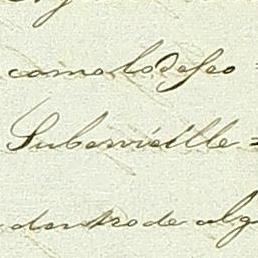 como lo deseo =
Subervielle =
dentro de alg